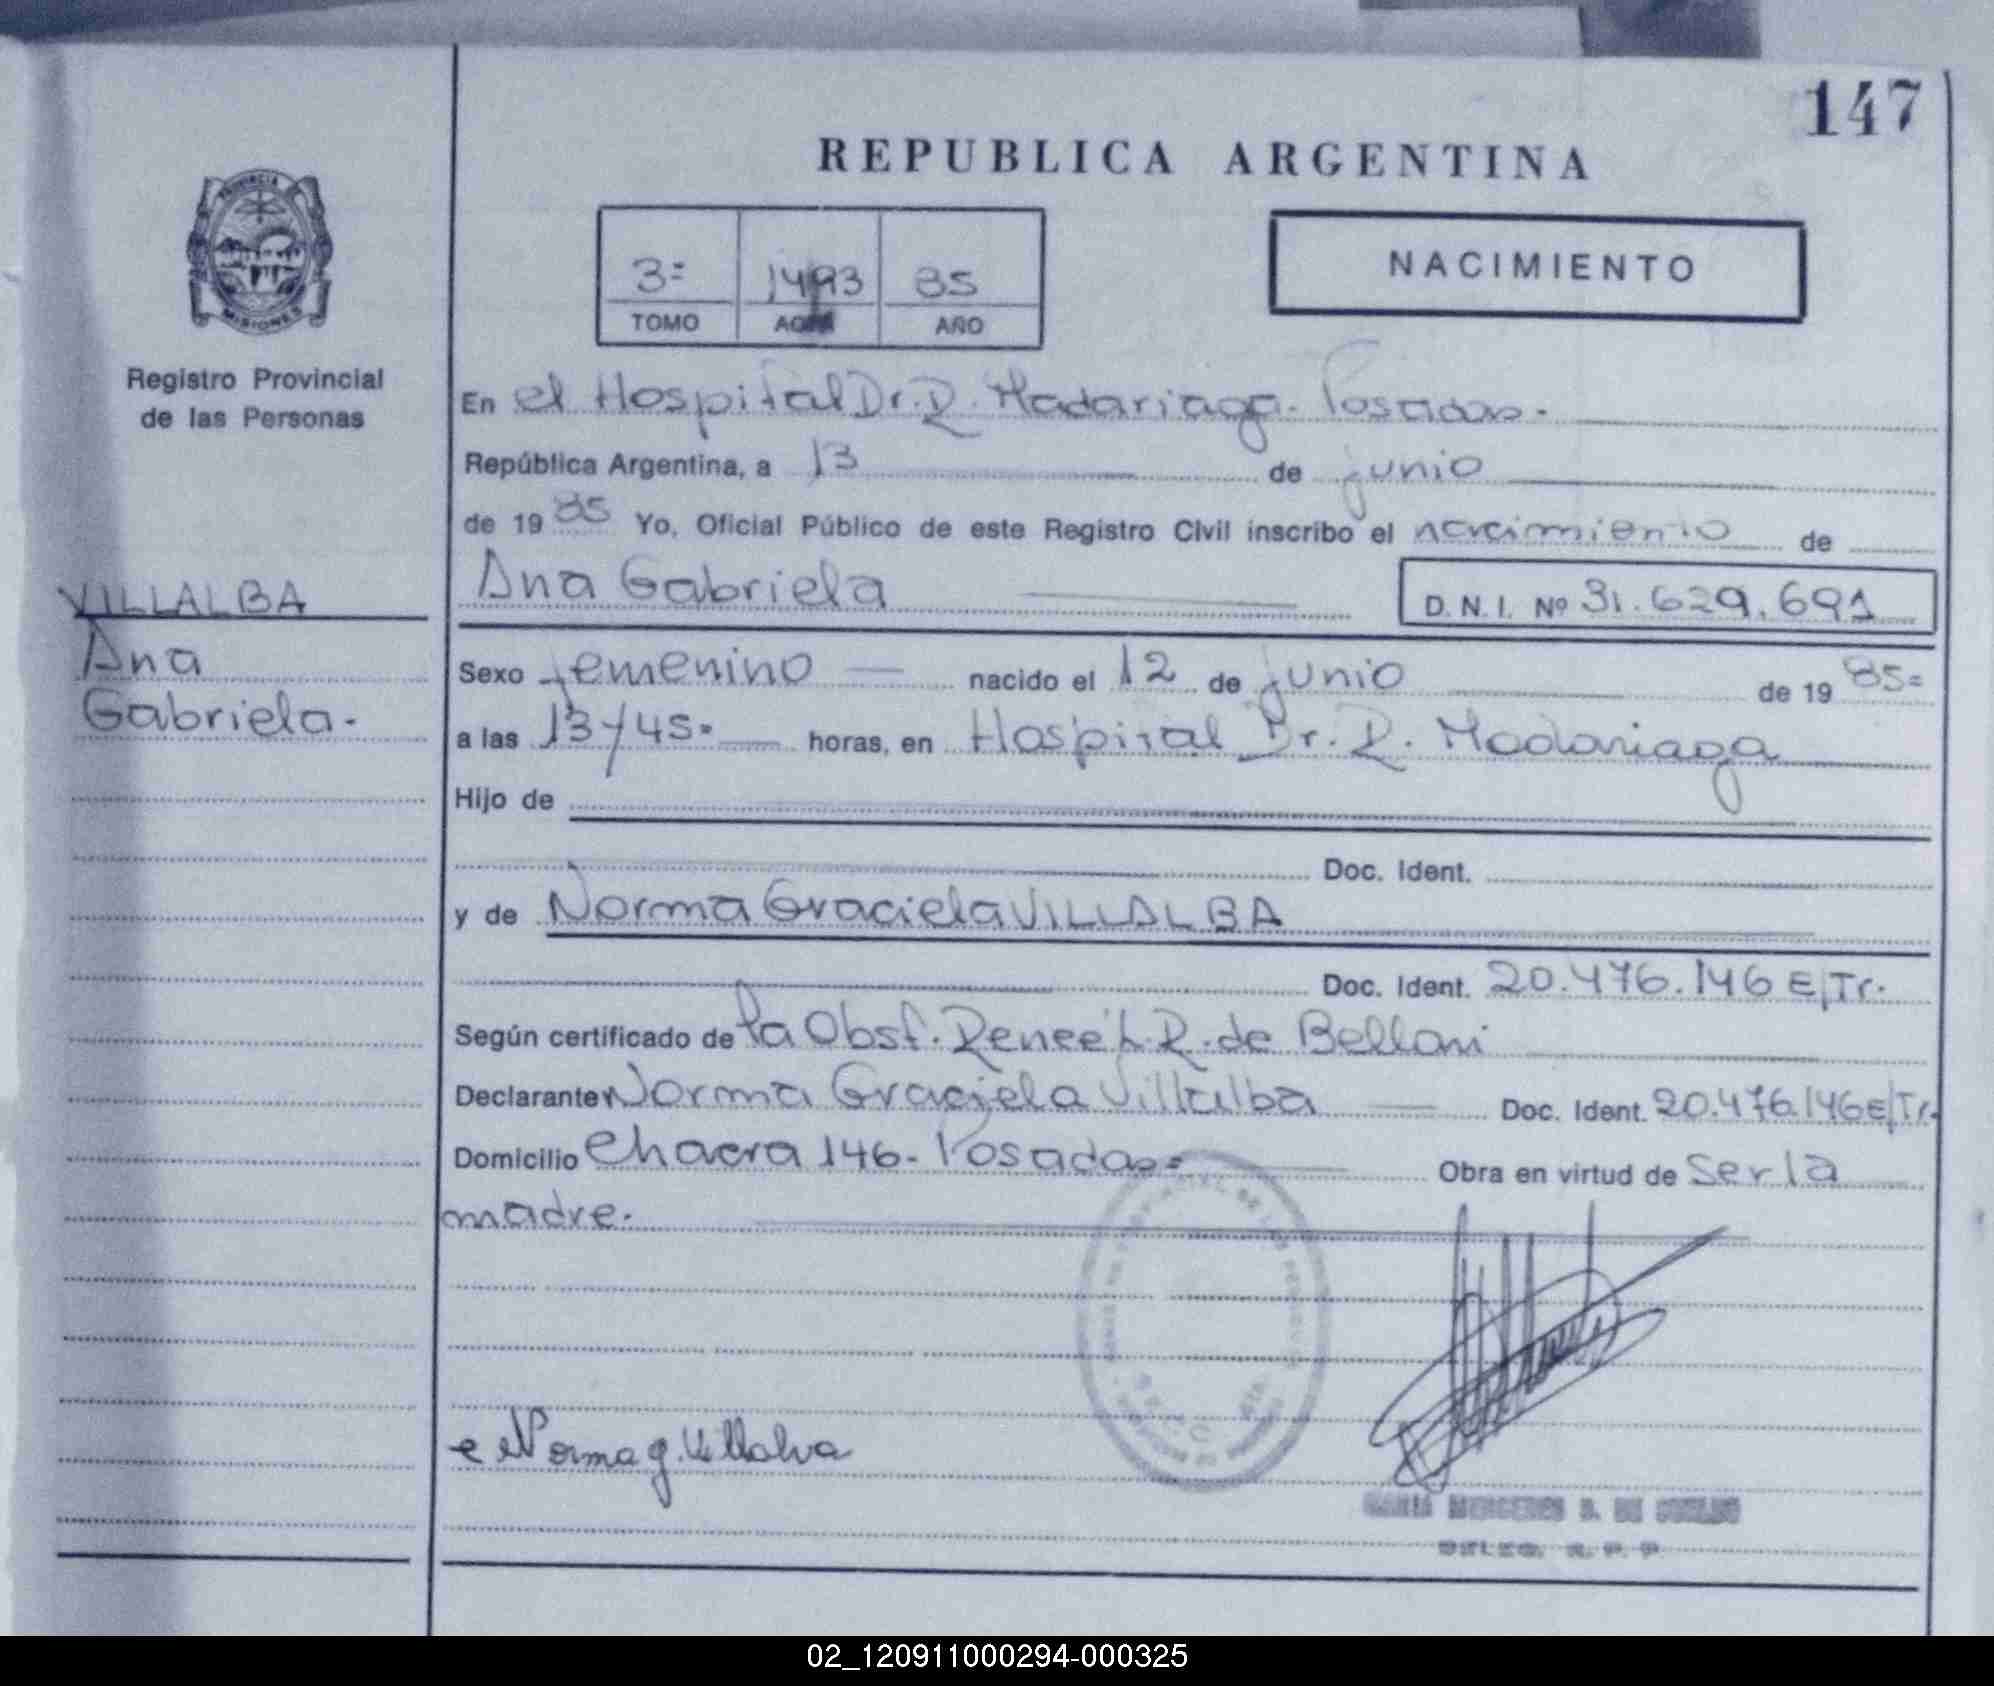 147
REPUBLICA ARGENTINA
PROVINCIA
MISIONES
Registro Provincial
de las Personas
3=
1493
85
TOMO
AÑO
NACIMIENTO
En el Hospital Dr. R. Madariaga. Posadas.
República Argentina, a 13 de junio
de 1985 Yo, Oficial Público de este Registro Civil inscribo el nacimiento de
Ana Gabriela
D.N.I. Nº 31.629.691
VILLALBA
Ana
Gabriela.
Sexo femenino nacido el 12 de junio de 1985=
a las 13y45. horas, en Hospital Dr. R. Madariaga
Hijo de
Doc. Ident.
y de Norma Graciela VILLALBA
Doc. Ident. 20.476.146 E/Tr.
Según certificado de la Obst. Reneé L. R. de Bellani
Declarante Norma Graciela Villalba Doc. Ident. 20.476.146 E/Tr.
Domicilio Chacra 146- Posadas= Obra en virtud de Ser la
madre.
Norma g. Villalva
MARIA MERCEDES
DELEG. R. P. P.
02_120911000294-000325